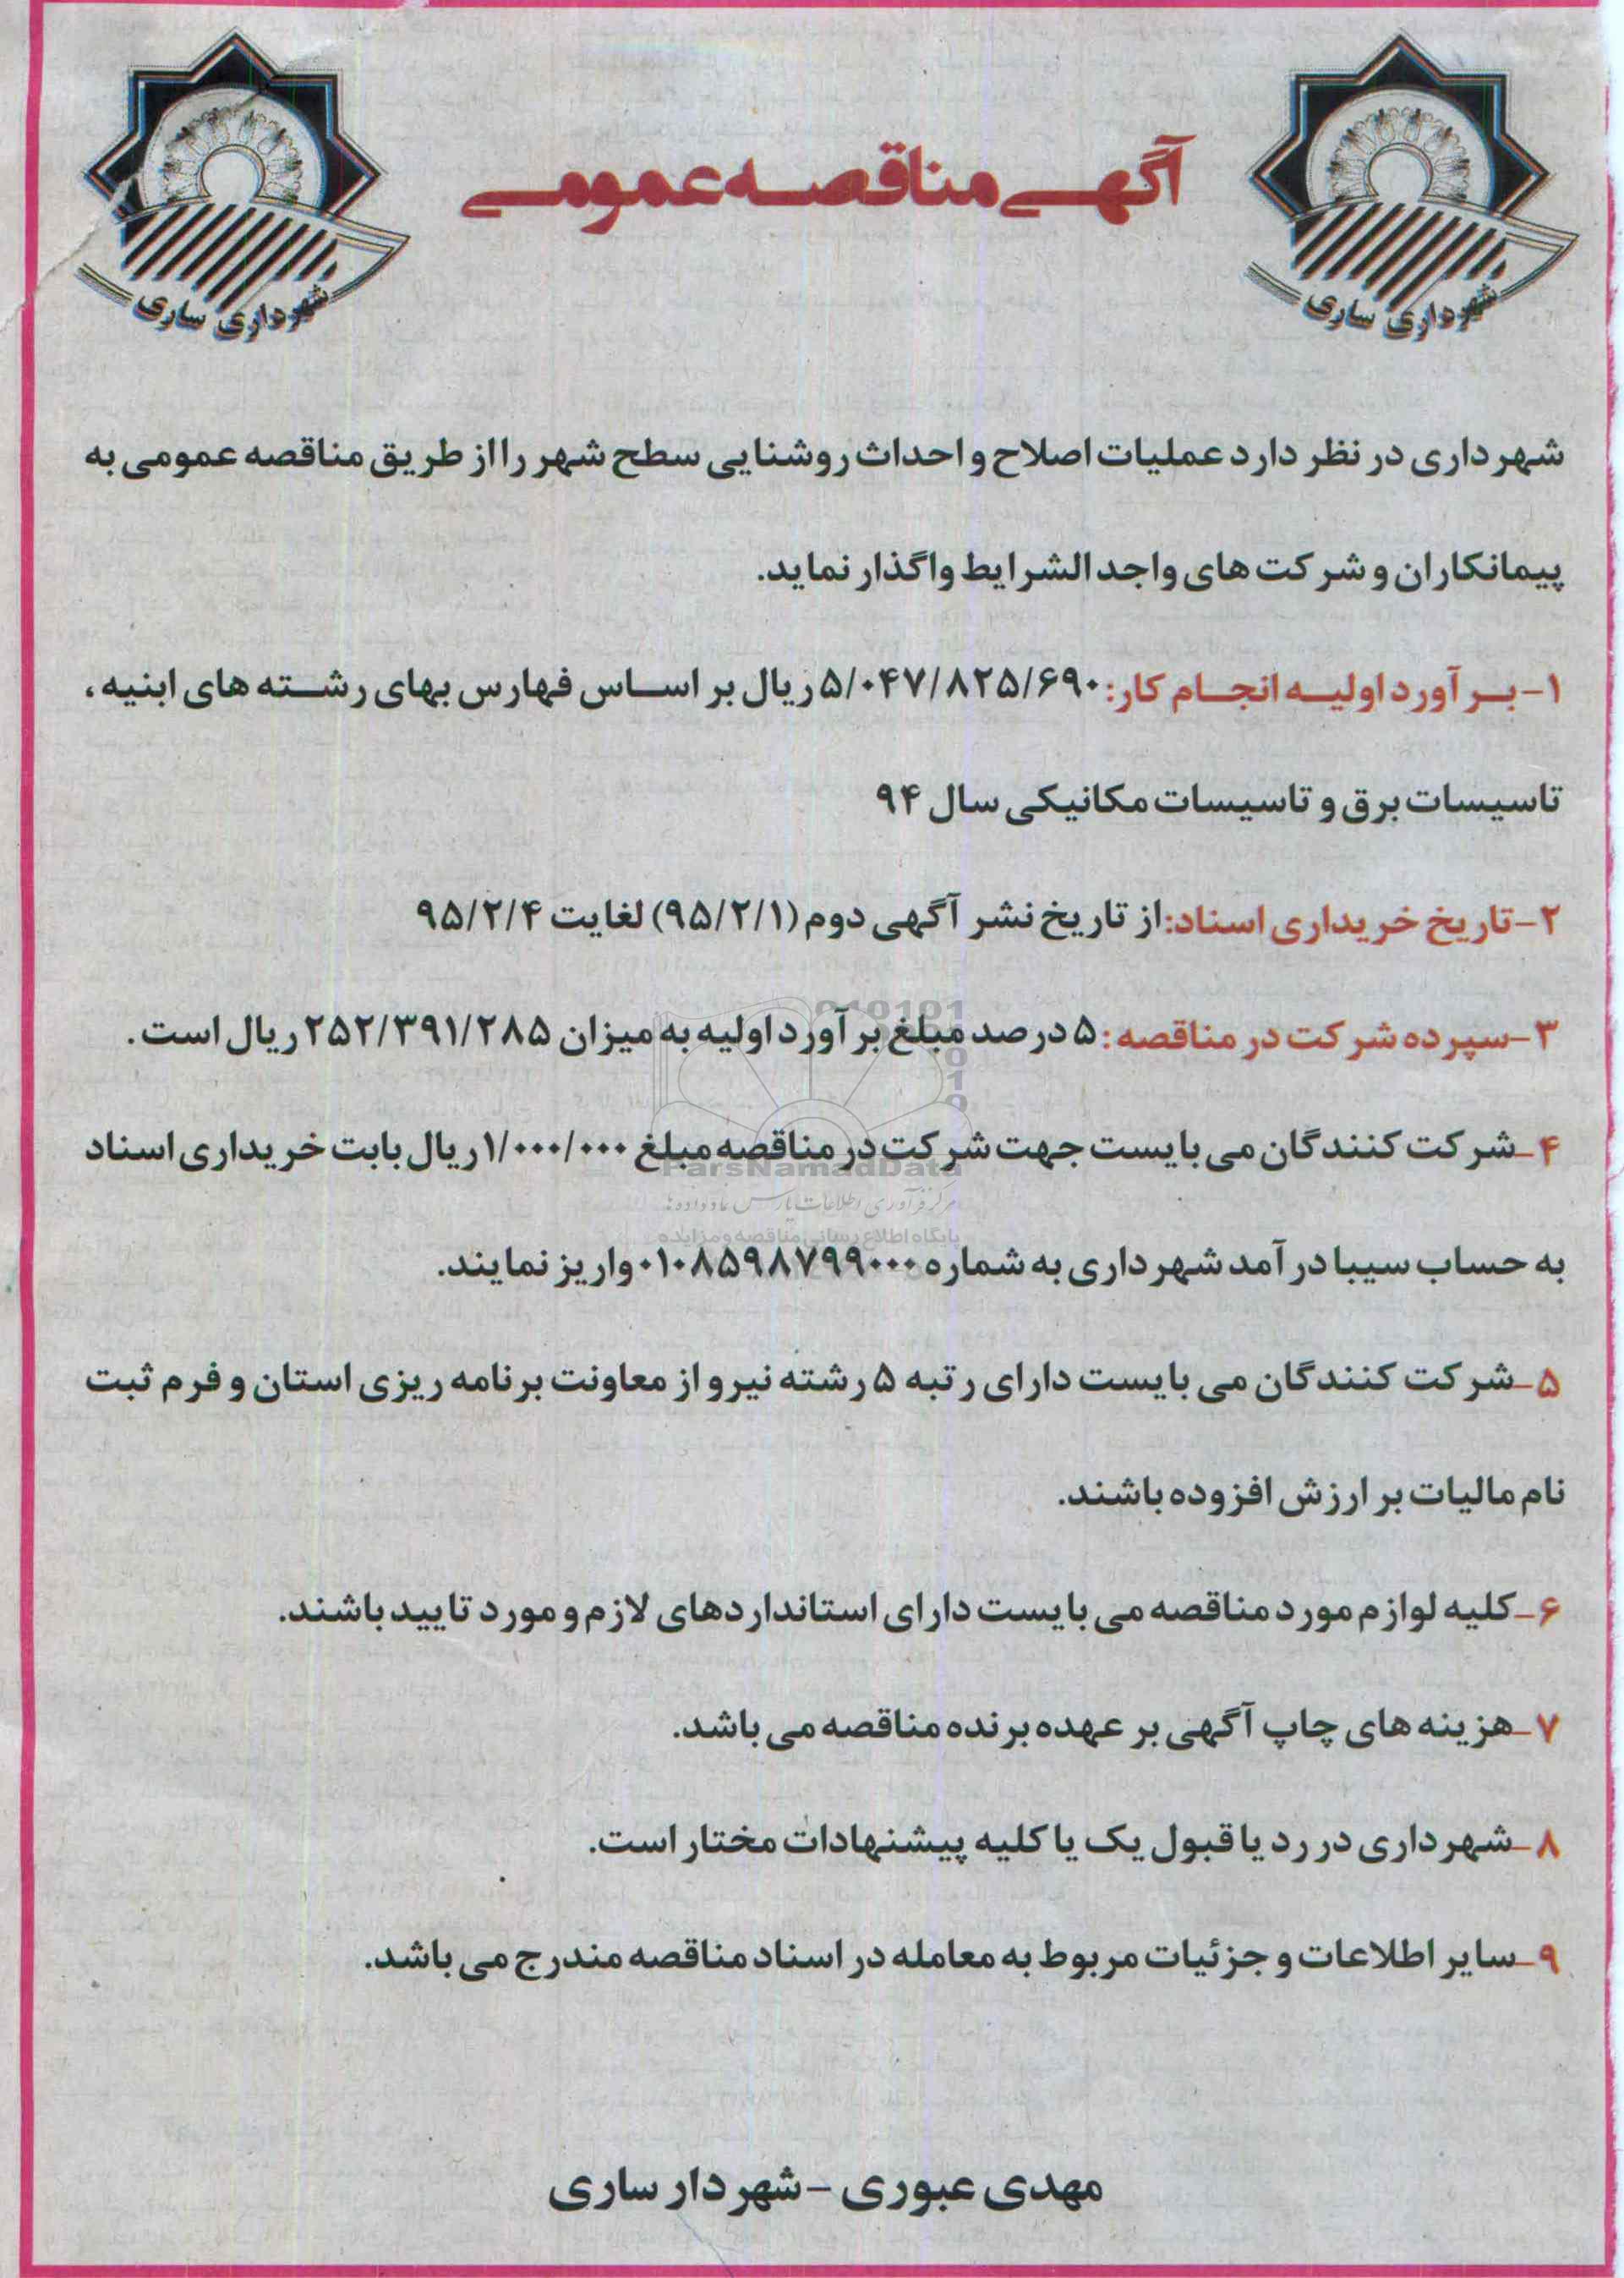 آگهی مناقصه عمومی
شهرداری ساری
شهرداری ساری
شهرداری در نظر دارد عملیات اصلاح و احداث روشنایی سطح شهر را از طریق مناقصه عمومی به
پیمانکاران و شرکت های واجد الشرایط واگذار نماید.
۱- برآورد اولیه انجام کار: ۵/۰۴۷/۸۲۵/۶۹۰ ریال بر اساس فهارس بهای رشته های ابنیه،
تاسیسات برق و تاسیسات مکانیکی سال ۹۴
۲- تاریخ خریداری اسناد: از تاریخ نشر آگهی دوم (۹۵/۲/۱) لغایت ۹۵/۲/۴
۳- سپرده شرکت در مناقصه: ۵ درصد مبلغ برآورد اولیه به میزان ۲۵۲/۳۹۱/۲۸۵ ریال است.
۴- شرکت کنندگان می بایست جهت شرکت در مناقصه مبلغ ۱/۰۰۰/۰۰۰ ریال بابت خریداری اسناد
ParsNamadData
مرکز فرآوری اطلاعات پارس نماد داده ها
پایگاه اطلاع رسانی مناقصه و مزایده
به حساب سیبا درآمد شهرداری به شماره ۰۱۰۸۵۹۸۷۹۹۰۰۰ واریز نمایند.
۵- شرکت کنندگان می بایست دارای رتبه ۵ رشته نیرو از معاونت برنامه ریزی استان و فرم ثبت
نام مالیات بر ارزش افزوده باشند.
۶- کلیه لوازم مورد مناقصه می بایست دارای استانداردهای لازم و مورد تایید باشند.
۷- هزینه های چاپ آگهی بر عهده برنده مناقصه می باشد.
۸- شهرداری در رد یا قبول یک یا کلیه پیشنهادات مختار است.
۹- سایر اطلاعات و جزئیات مربوط به معامله در اسناد مناقصه مندرج می باشد.
مهدی عبوری - شهردار ساری